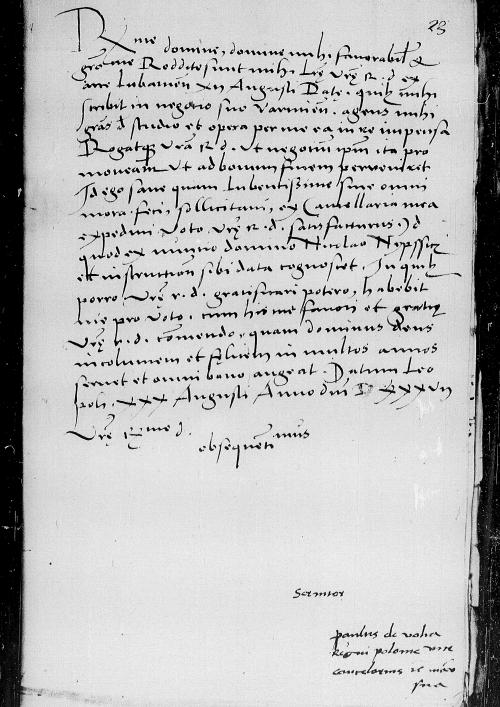 23
R me domine, domine mihi favorabilis &
gratiose Reddite sunt mihi Lrę Vrę R. d. ex
arce Lubavien XII Augusti Datę. quib mihi
scribit in negocio suo Varmien. agens mihi
gras d studio et opera per me ea in re impensa
Rogatqz Vra R. d. Ut negotiū ipm ita pro
moveam Ut ad bonum finem perveniret
Id ego sane quam Lubentissime sine omni
mora feci, sollicitavi, ex Cancellaria mea
expedivi Voto Vrę R. d. satisfacturus. Id
quod ex nuncio domino Niclao Nypssicz
et instruction sibi data cognoscet. In quib
porro Vrę r. d. gratificari potero, habebit
me pro Voto. cum his me favori et gratię
Vrę r. d. comendo, quam dominus deus
incolumem et felicem in multos annos
servet et omni bono augeat. Datum Leo
poli. XXX Augusti Anno dni D XXXVII
Vrę R me d.
obsequenti mus
Servitor
paulus de volia
Regni polonie vice
cancelarius
sua